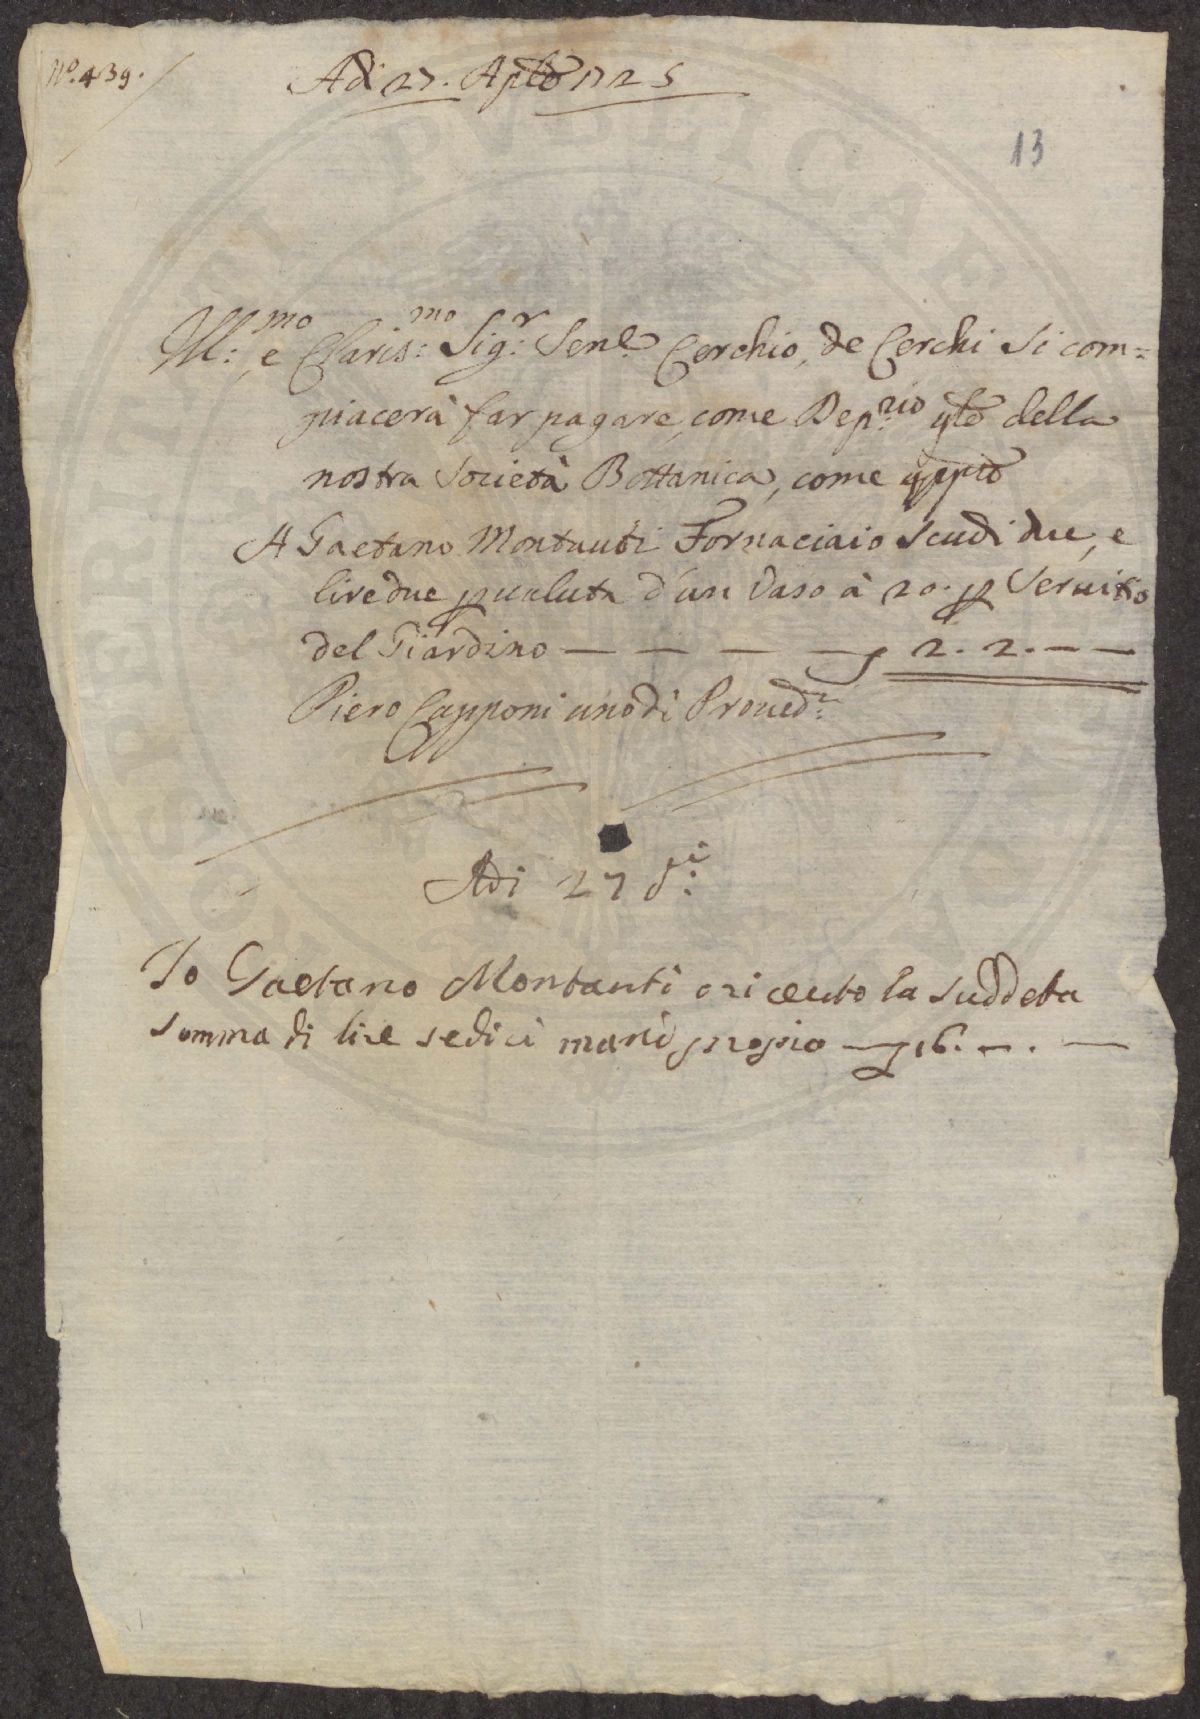 No. 439.
Adi 27. Aple 1725
13
Ill:mo, e Claris:mo Sig:r Sen.e Cerchio, de Cerchi si com=
piacerà far pagare, come Dep:rio gle della
nostra Società Bottanica, come appro
A Gaetano Montauti Fornaciaio scudi due, e
lire due p ualuta d'un Vaso à 20. p Seruitio
del Giardino — — — — 2. 2. — —
Piero Capponi uno di Proued:ri
Adi 27 d:i
Io Gaetano Montauti o riceuto la suddeta
somma di lire sedici mano propio — 16. —. —
SOSPITATI PVBLICAE